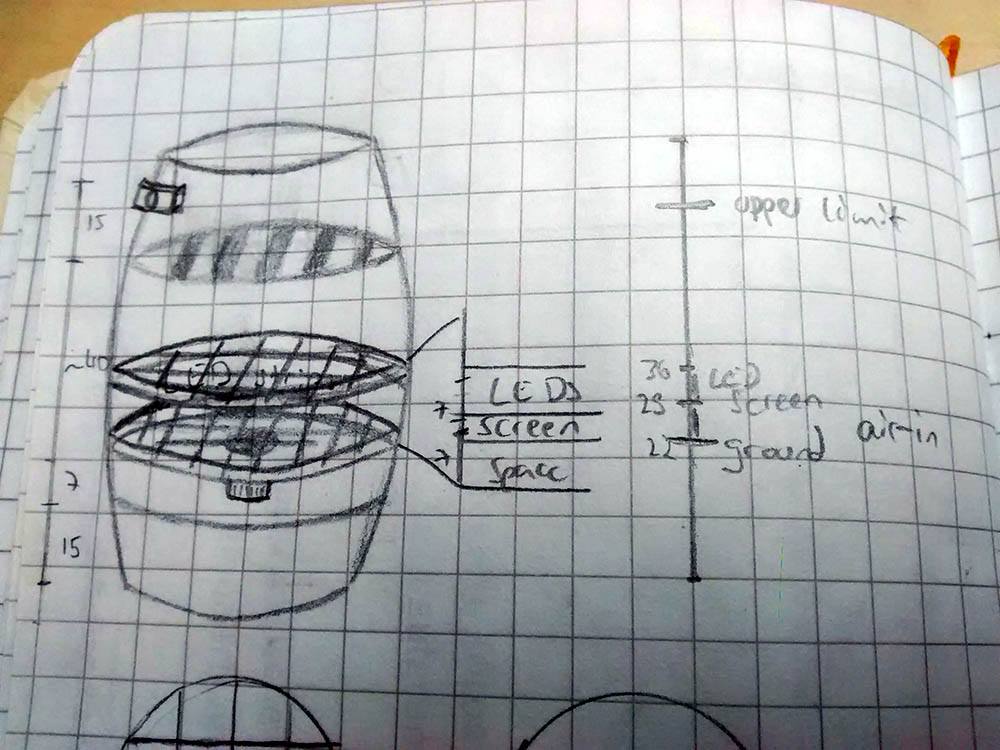 15
~40
7
15
LEDs
7
screen
7
space
upper limit
36 LED
29 screen
22 ground
air-in